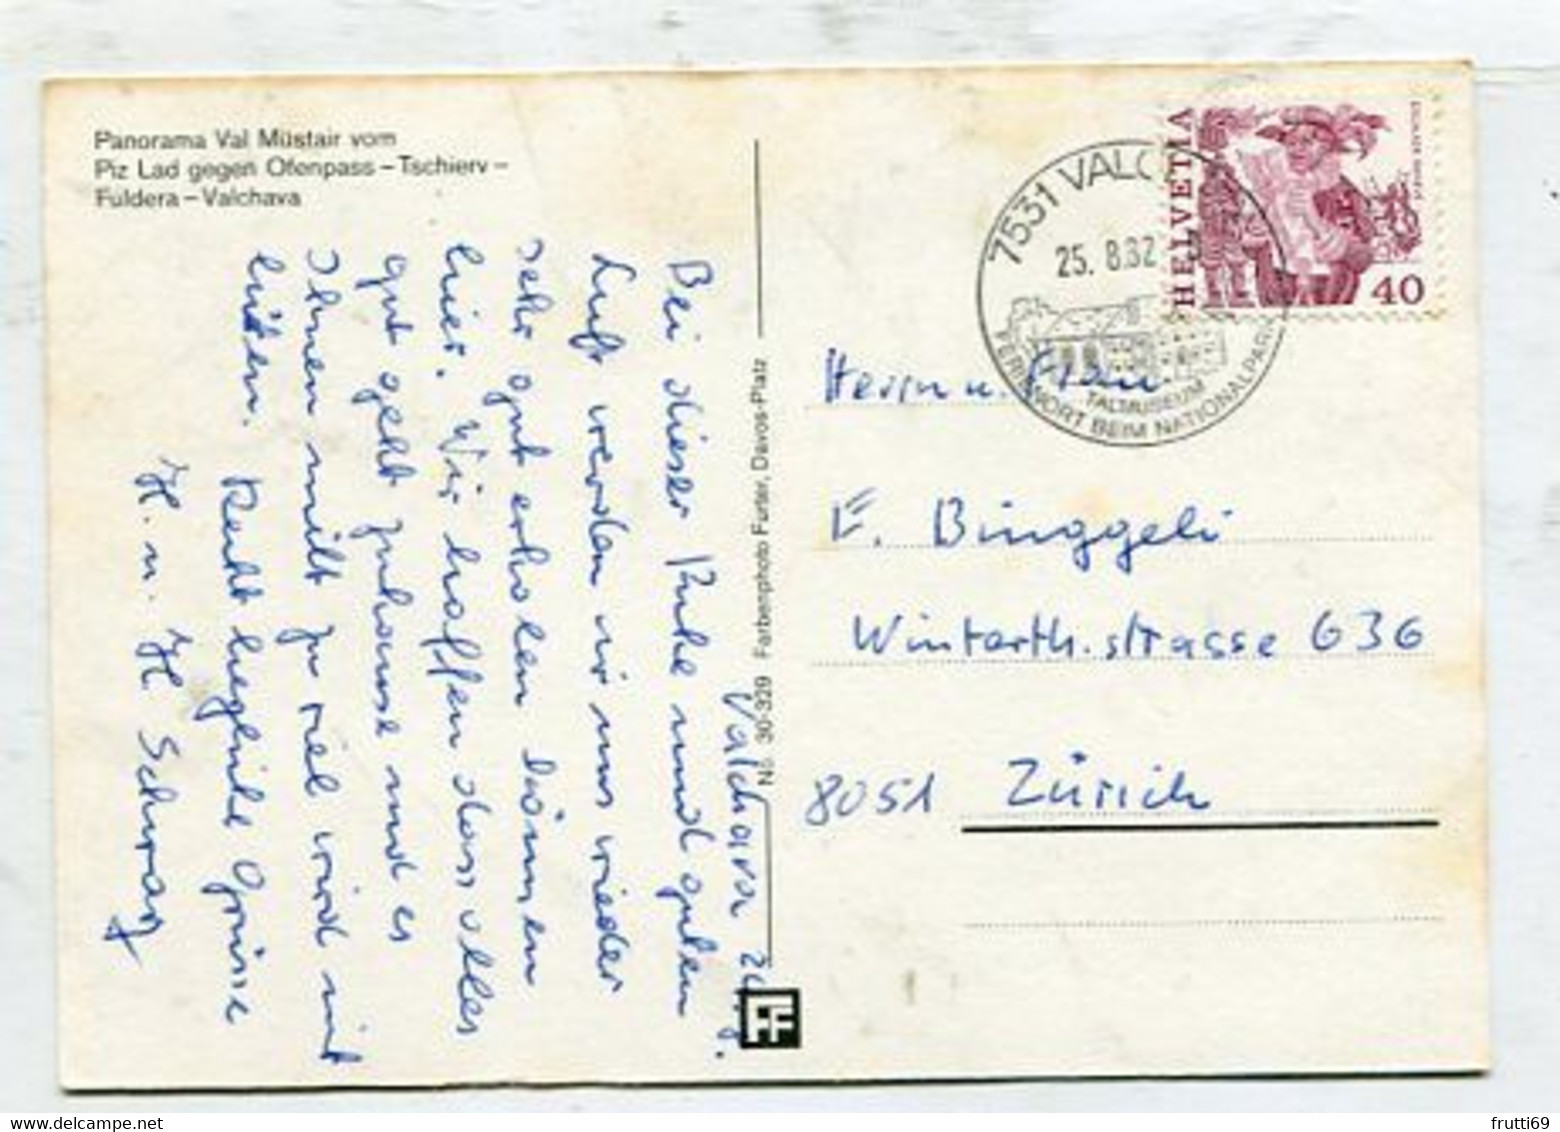 Panorama Val Müstair vom
Piz Lad gegen Ofenpass – Tschierv –
Fuldera – Valchava
Valchava
Bei dieser Ruhe und guten
Luft werden wir uns wieder
sehr gut erholen können
hier. Wir hoffen dass alles
gut geht zuhause und es
Ihnen nicht zu viel wird mit
Recht herzliche Grüsse
H. u. H. Schwarz
Nr. 30-329 Farbenphoto Furter, Davos-Platz
7531 VALC
25. 8.82
TALMUSEUM
FERIENORT BEIM NATIONALPARK
HELVETIA
40
Herrn u. Frau
E. Binggeli
Winterth.strasse 636
8051 Zürich
frutti69